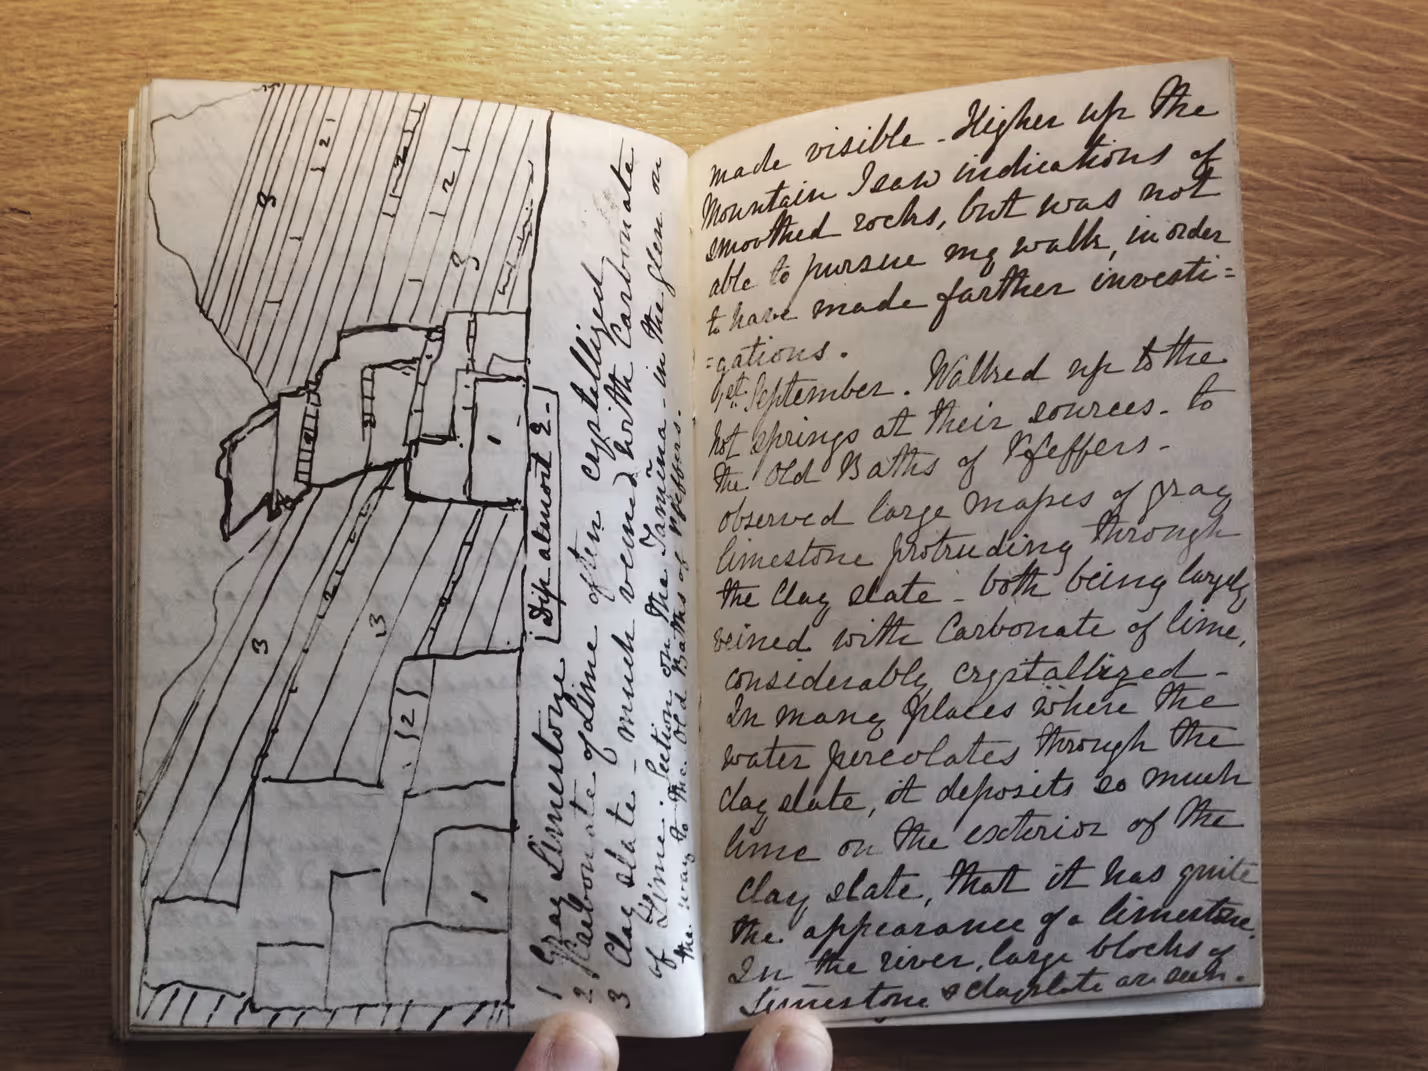 Dip almost 2.
1 Gray Limestone
2 Carbonate of Lime often crystallized
3 Clay slate - much veined with Carbonate
of Lime. Section on the Tamina - in the glen on
the way to the Old Baths of Pfeffers.
made visible - Higher up the
Mountain I saw indications of
smoothed rocks, but was not
able to pursue my walk, in order
to have made farther investi=
=gations.
1st September. Walked up to the
hot springs at their sources - to
the Old Baths of Pfeffers -
observed large masses of gray
limestone protruding through
the clay slate - both being largely
veined with Carbonate of lime,
considerably crystallized -
In many places where the
water percolates through the
clay slate, it deposits so much
lime on the exterior of the
clay slate, that it has quite
the appearance of a limestone.
In the river, large blocks of
Limestone & clayslate are seen.